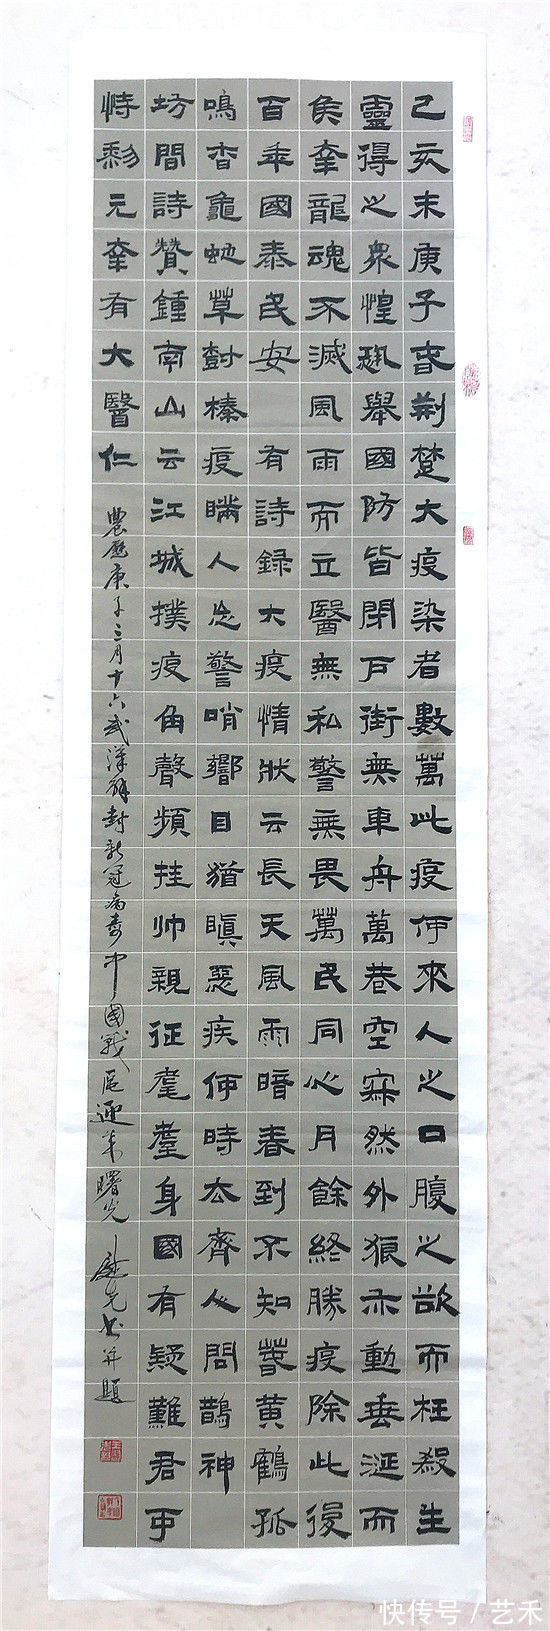 己亥末庚子春荆楚大疫染者數萬此疫何來人之口腹之欲而枉殺生
靈得之衆惶恐舉國防皆閉戸街無車舟萬巷空寂然外狼亦動垂涎而
矦幸龍魂不滅風雨而立醫無私警無畏萬民同心月餘終勝疫除此後
百年國泰民安 有詩録大疫情狀云長天風雨暗春到不知春黄鶴孤
鳴杳龜虵草封榛疫瞞人怎警哨響目猶瞋惡疾何時去齊心問鵲神
坊間詩贊鍾南山云江城撲疫角聲頻挂帥親征耄耋身國有疑難君可
恃黎元幸有大醫仁
農歷庚子三月十六武漢解封新冠病毒中國戰疫迎来曙光 先书并題
快传号/艺禾